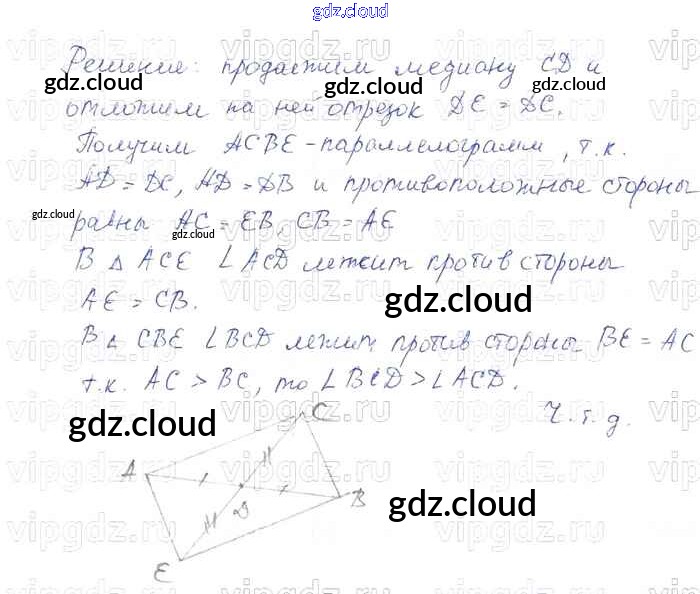 gdz.cloud
Решение: продолжим медиану CD и
отложим на ней отрезок DE = DC.
Получим ACBE - параллелограмм, т.к.
AD = DC, AD = DB и противоположные стороны
равны AC = EB, CB = AE
В △ ACE ∠ ACD лежит против стороны
AE = CB.
В △ CBE ∠ BCD лежит против стороны BE = AC
т.к. AC > BC, то ∠ BCD > ∠ ACD.
Ч.т.д.
C
A
D
B
E
gdz.cloud
gdz.cloud
gdz.cloud
gdz.cloud
gdz.cloud
gdz.cloud
gdz.cloud
gdz.cloud
vipgdz.ru